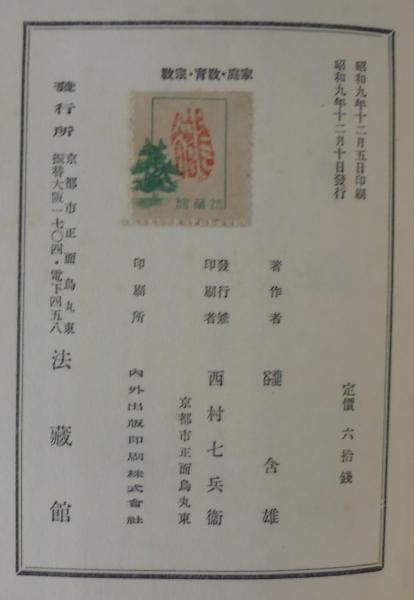 昭和九年十二月五日印刷
昭和九年十二月十日發行
家庭・教育・宗教
法藏館
定價 六拾錢
著作者 豅 含雄
發行兼
印刷者 西村七兵衞
京都市正面烏丸東
印刷所 內外出版印刷株式會社
發行所 京都市正面烏丸東
振替大阪一七〇四・電下四五八
法藏館